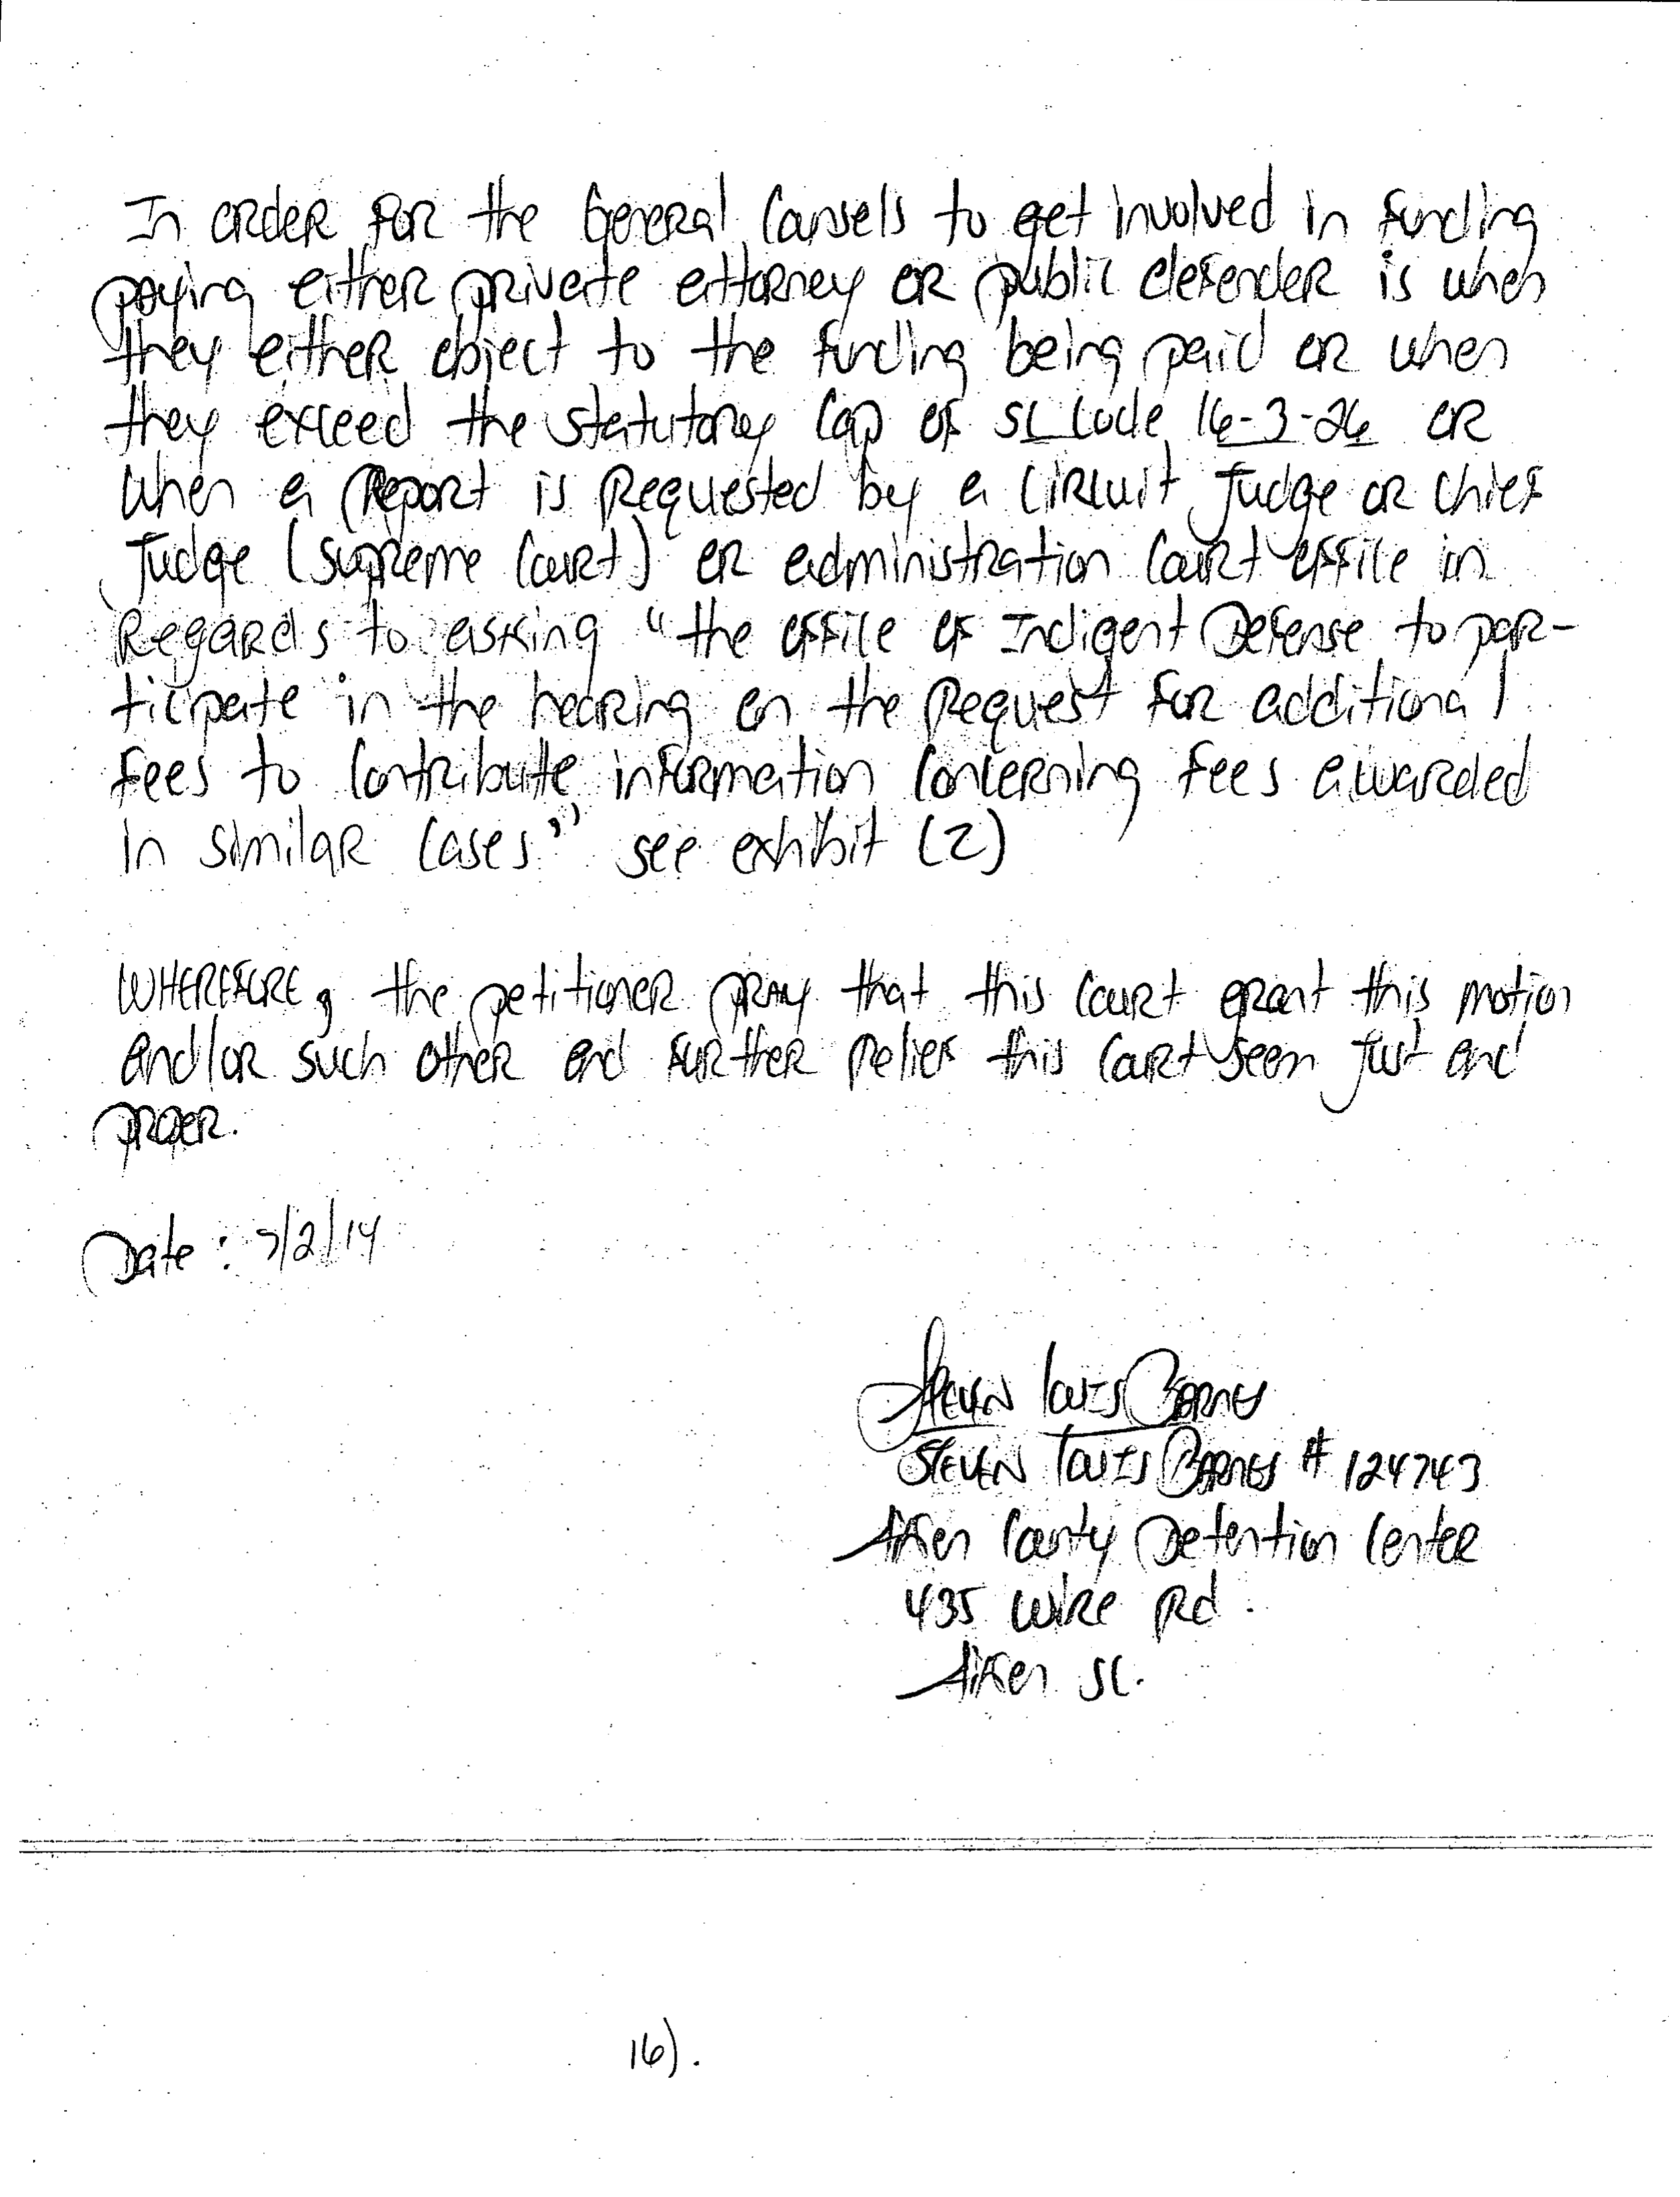 In order for the General Counsels to get involved in funding
paying either private attorney or public defender is when
they either object to the funding being paid or when
they exceed the statutory cap of SC Code 16-3-26 or
when a Report is Requested by a Circuit Judge or Chief
Judge (Supreme Court) or administration Court office in
Regards to asking "the office of Indigent Defense to par-
ticipate in the hearing on the Request for additional
fees to contribute information concerning fees awarded
in similar cases", see exhibit (2)
WHEREFORE, the petitioner pray that this Court grant this motion
and/or such other and further Relief this Court seem just and
proper.
Date: 7/2/14
Steven Louis Barnes
Steven Louis Barnes # 124743
Aiken County Detention Center
435 Wire Rd.
Aiken SC.
16).